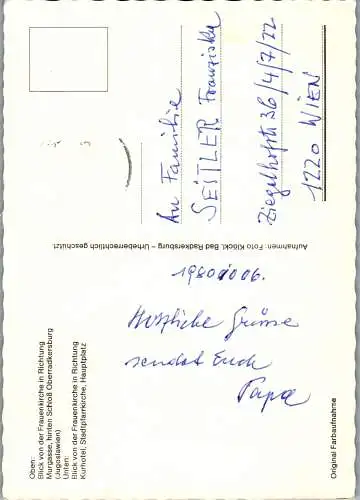 Oben:
Blick von der Frauenkirche in Richtung
Murgasse, hinten Schloß Oberradkersburg
(Jugoslawien)
Unten:
Blick von der Frauenkirche in Richtung
Kurhotel, Stadtpfarrkirche, Hauptplatz
19801006.
Herzliche Grüsse
sendet Euch
Papa
Original Farbaufnahme
Aufnahmen: Foto Klöckl, Bad Radkersburg – Urheberrechtlich geschützt.
An Familie
SEITLER Franziska
Ziegelhofstr 36/4/7/22
1220 WIEN